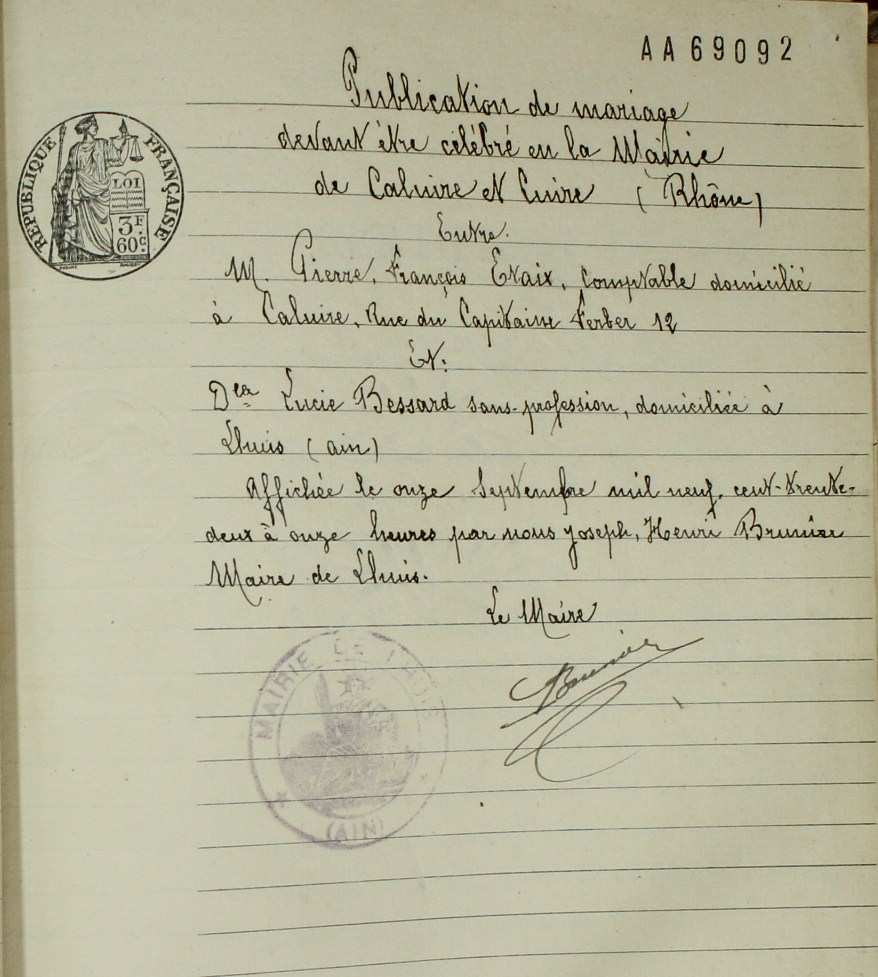 AA69092
RÉPUBLIQUE FRANÇAISE
LOI
3F.
60c.
Publication de mariage
devant être célébré en la Mairie
de Caluire et Cuire (Rhône)
Entre.
M. Pierre, François Etaix, comptable domicilié
à Caluire, Rue du Capitaine Ferber 12
Et:
Dlle Lucie Bessard sans-profession, domiciliée à
Lhuis (ain)
Affichée le onze Septembre mil neuf. cent-trente-
deux à onze heures par nous Joseph, Henri Brunier
Maire de Lhuis.
Le Maire
Brunier
MAIRIE DE LHUIS
(AIN)